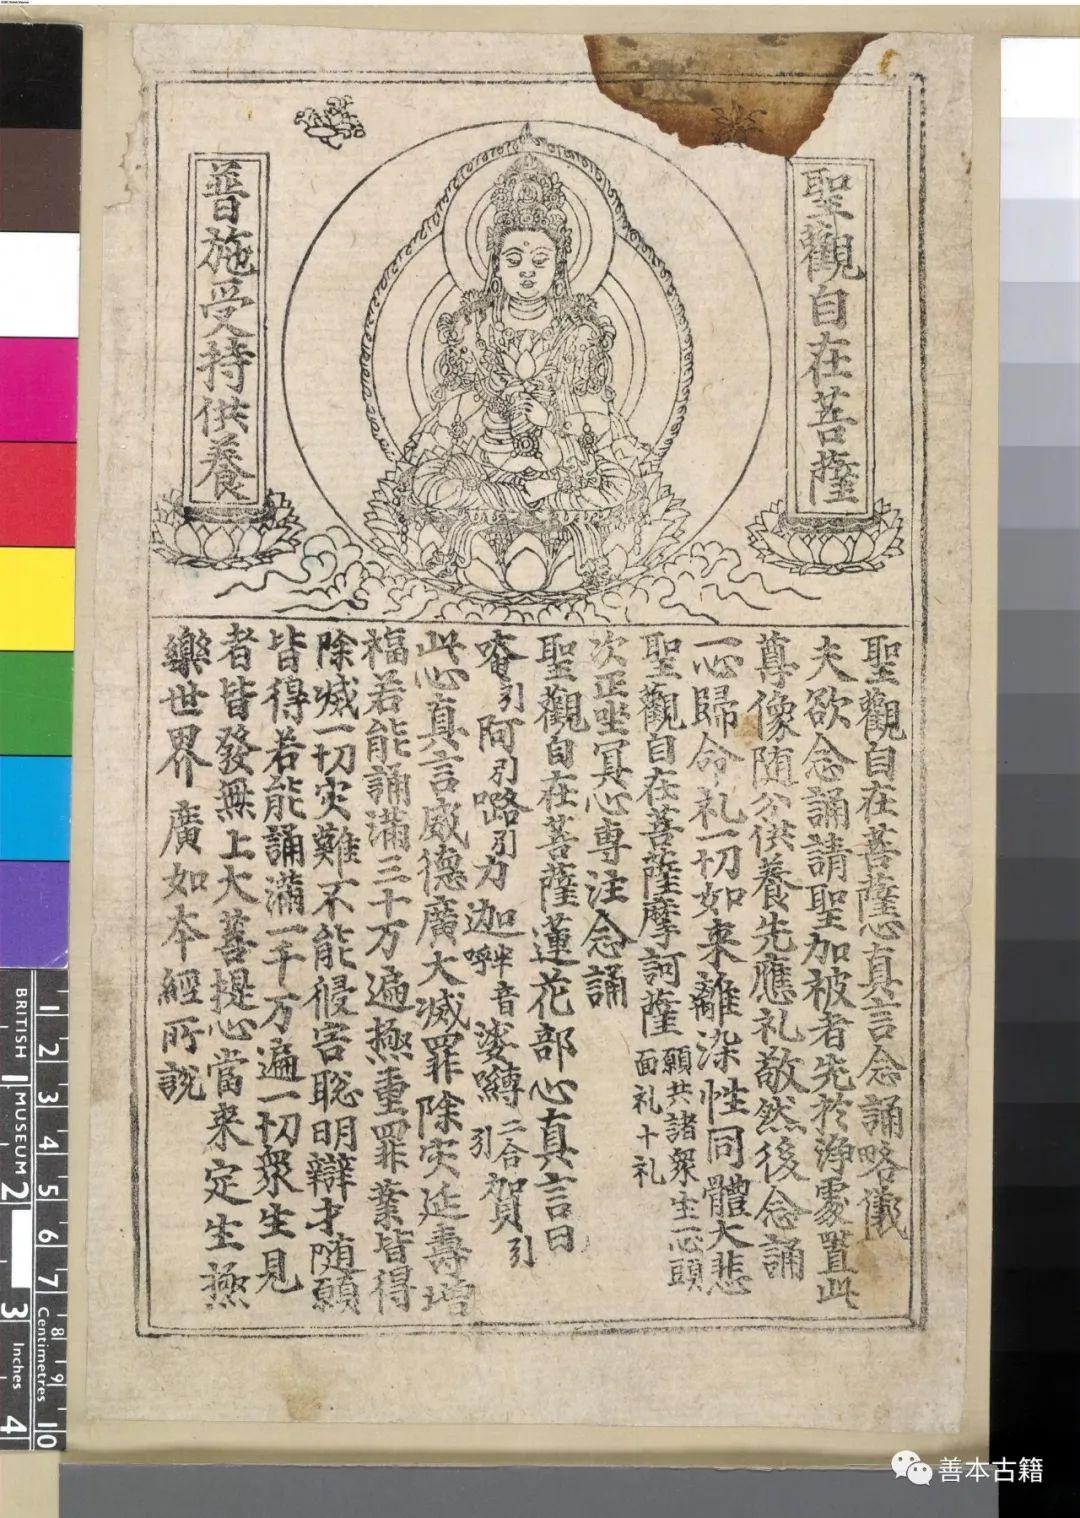 聖觀自在菩薩
普施受持供養
聖觀自在菩薩心真言念誦略儀
夫欲念誦請聖加被者先於淨處置此
尊像随分供養先應礼敬然後念誦
一心歸命礼一切如來離染性同體大悲
聖觀自在菩薩摩訶薩願共諸衆生一心頭
面礼十礼
次正坐冥心專注念誦
聖觀自在菩薩蓮花部心真言曰
唵引阿引嚕引力迦半音呼娑嚩二合引賀引
此心真言威德廣大滅罪除灾延壽增
福若能誦滿三十万遍極重罪業皆得
除滅一切灾難不能侵害聡明辯才随願
皆得若能誦滿一千万遍一切衆生見
者皆發無上大菩提心當来定生極
樂世界廣如本經所説
BRITISH MUSEUM
1 2 3 4 5 6 7 8 9 10
Centimetres
1 2 3 4
Inches
善本古籍